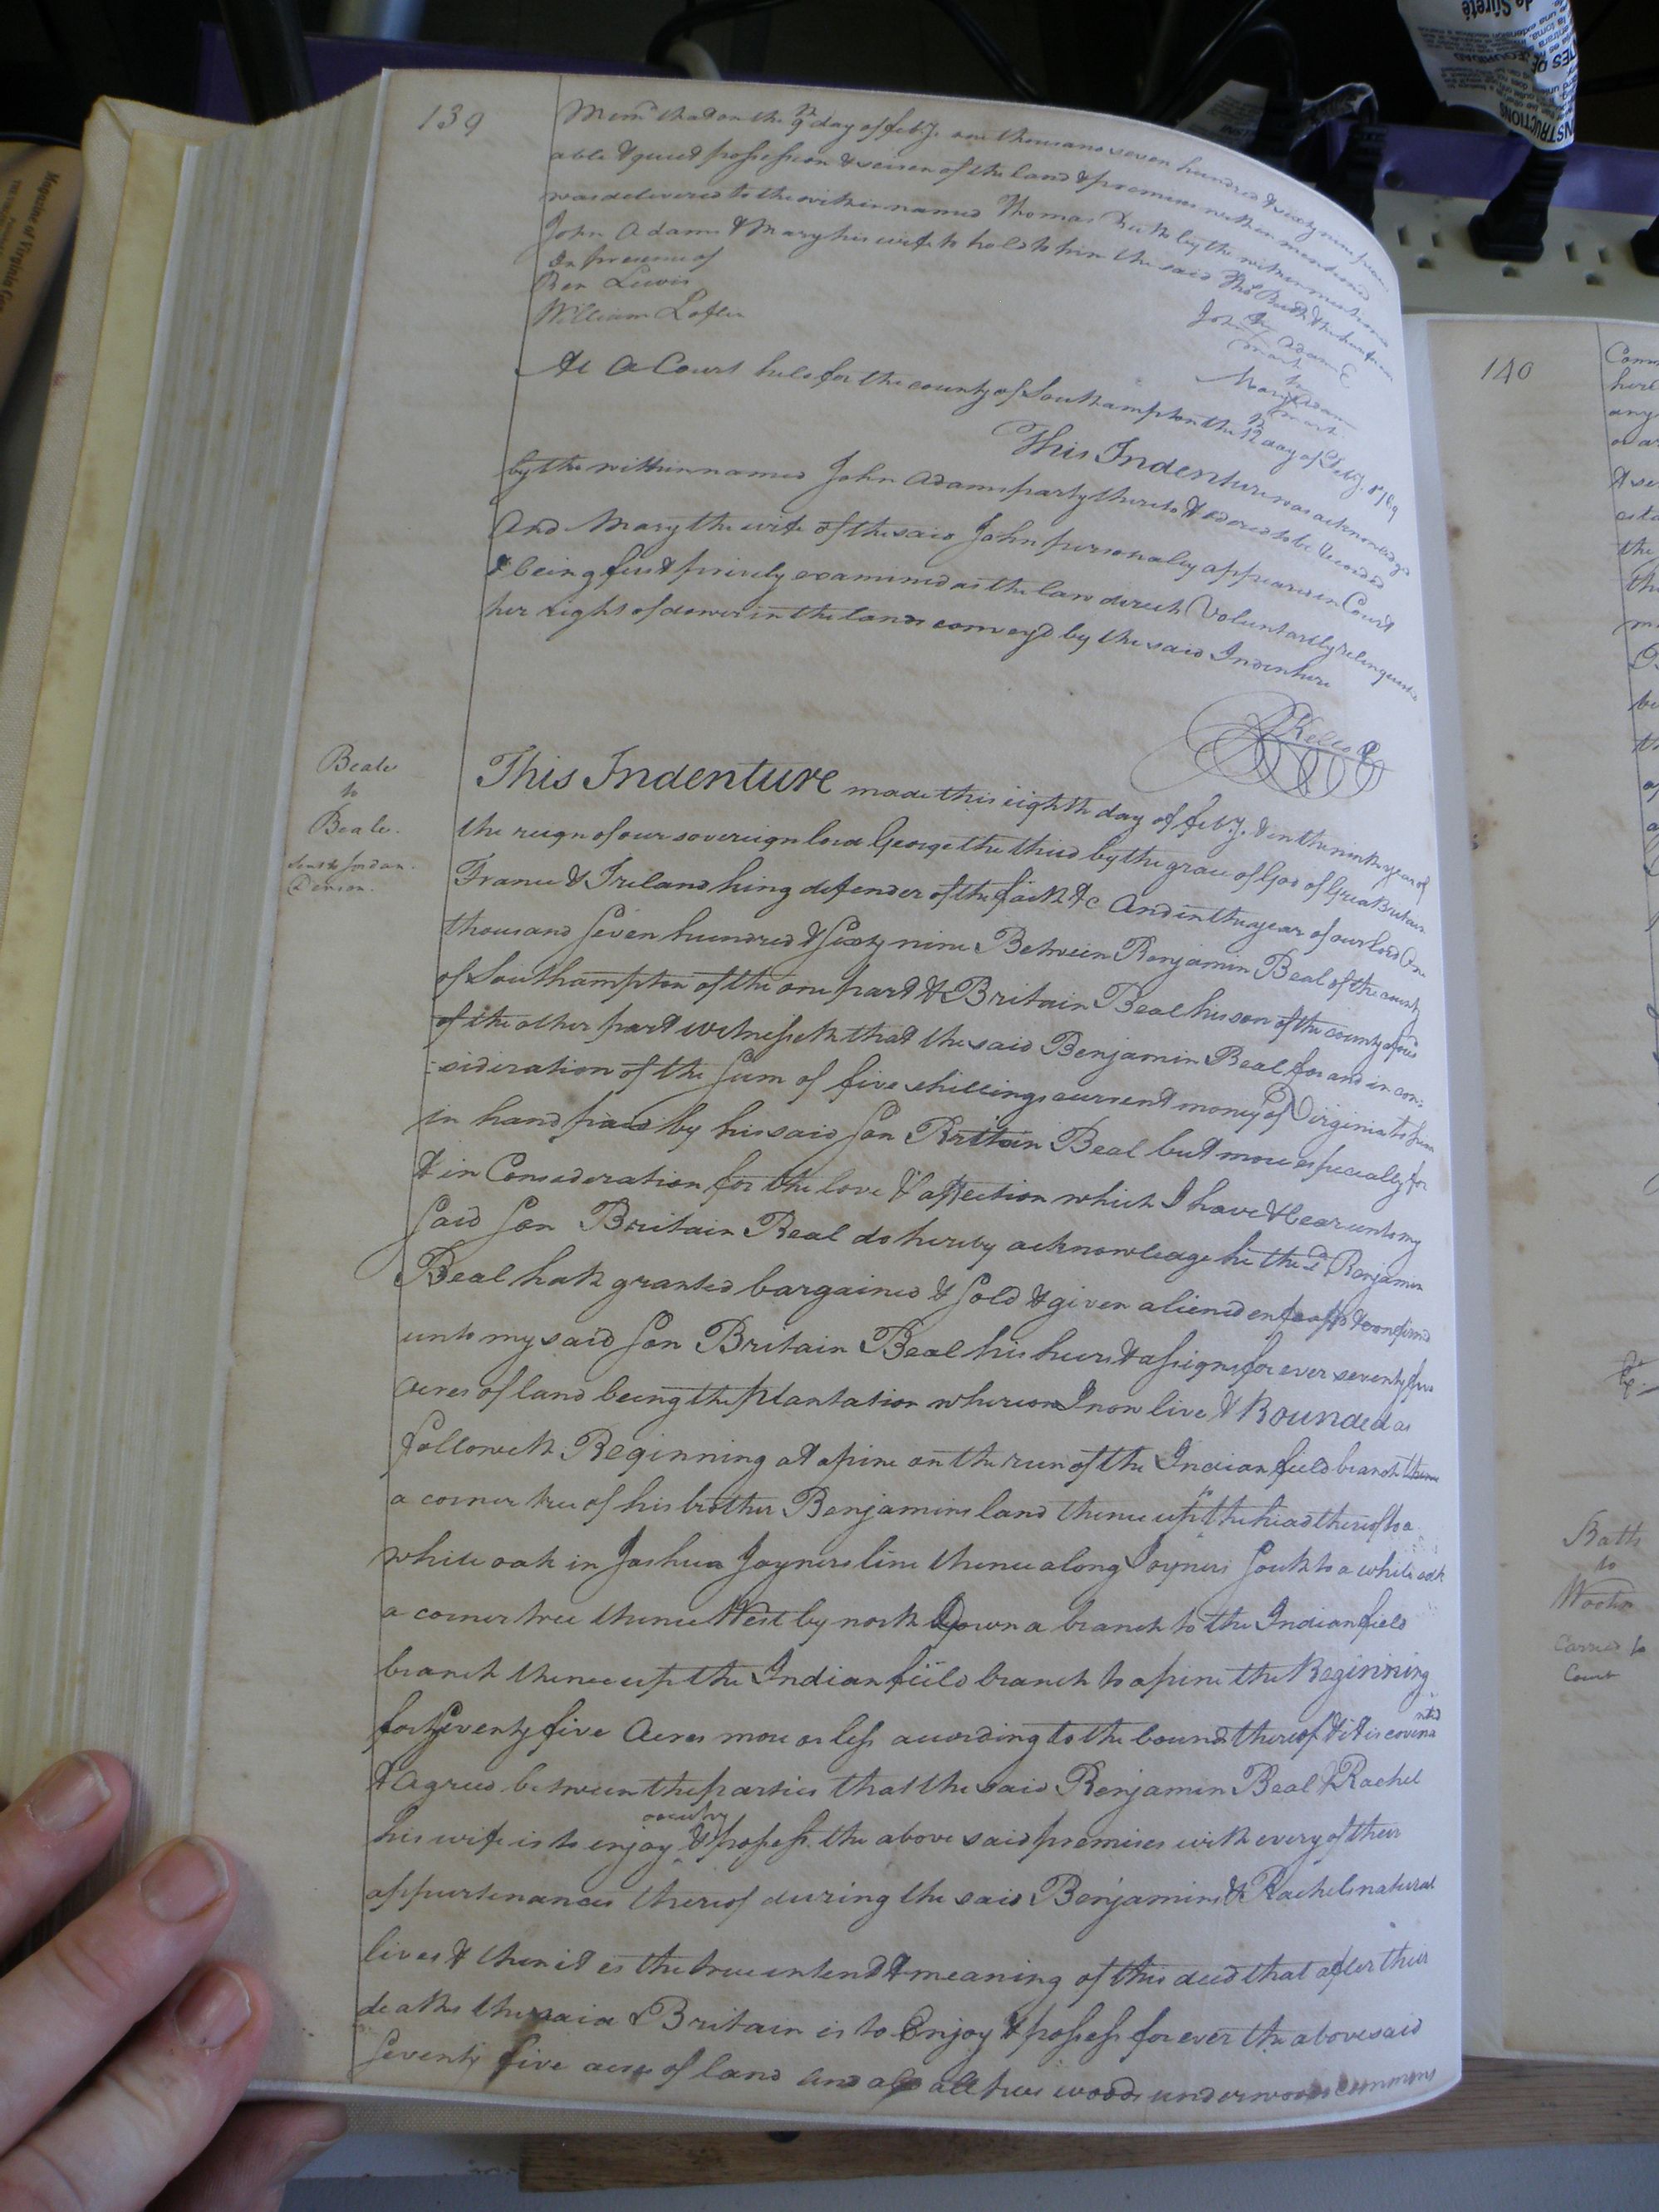 139
Mem.m that on the 9th day of feb.y. one thousand seven hundred & sixty nine peace
able & quiet possession & seisen of the land & premises within mentioned
was delivered to the within named Thomas by the within mentioned
John Adams & Mary his wife to hold to him the said Tho.s & his heirs for ever
In presence of
Ben Lewis
William Lofler
John Adams
mark
Mary Adams
mark
At A Court held for the county of Southampton the 12 day of Feb.y. 1769
This Indenture was acknowledged
by the within named John Adams party thereto & ordered to be recorded
And Mary the wife of the said John personaly appeared in Court
& being first privily examined as the law directs Voluntarily relinquished
her right of dower in the lands convey'd by the said Indenture
RKello
Beale
to
Beale.
Jordan
Denson.
This Indenture made this eighth day of feb.y. & in the ninth year of
the reign of our sovereign lord George the third by the grace of God of Great Britain
France & Ireland king defender of the faith &c And in the year of our lord One
thousand Seven hundred & Sixty nine Between Benjamin Beal of the county
of Southampton of the one part & Britain Beal his son of the county afores.d
of the other part witnesseth that the said Benjamin Beal for and in con:
:sideration of the Sum of five shillings current money of Virginia to him
in hand paid by his said Son Brittain Beal but more especially for
& in Consideration for the love & affection which I have & bear unto my
Said Son Britain Beal do hereby acknowledge he the s.d Benjamin
Beal hath granted bargained & Sold & given aliened enfeoff'd & confirmd
unto my said Son Britain Beal his heirs & assigns for ever seventy five
acres of land being the plantation whereon I now live & Bounded as
followeth Beginning at a pine on the run of the Indian field branch thence
a corner tree of his brother Benjamins land thence up to the head thereof to a
white oak in Joshua Joyners line thence along Joyners South to a white oak
a corner tree thence West by north Down a branch to the Indian field
branch thence up the Indian field branch to a pine the Beginning
for Seventy five Acres more or less according to the bounds thereof & it is covena
nted
& Agreed between the parties that the said Benjamin Beal & Rachel
his wife is to enjoy occupy & possess the above said premises with every of their
appurtenances thereof during the said Benjamins & Rachels natural
lives & then it is the true entent & meaning of this deed that after their
deaths the said Britain is to Enjoy & possess for ever the abovesaid
Seventy five acres of land And also all trees woods underwoods commons
140
Batts
to
Carried to
Court